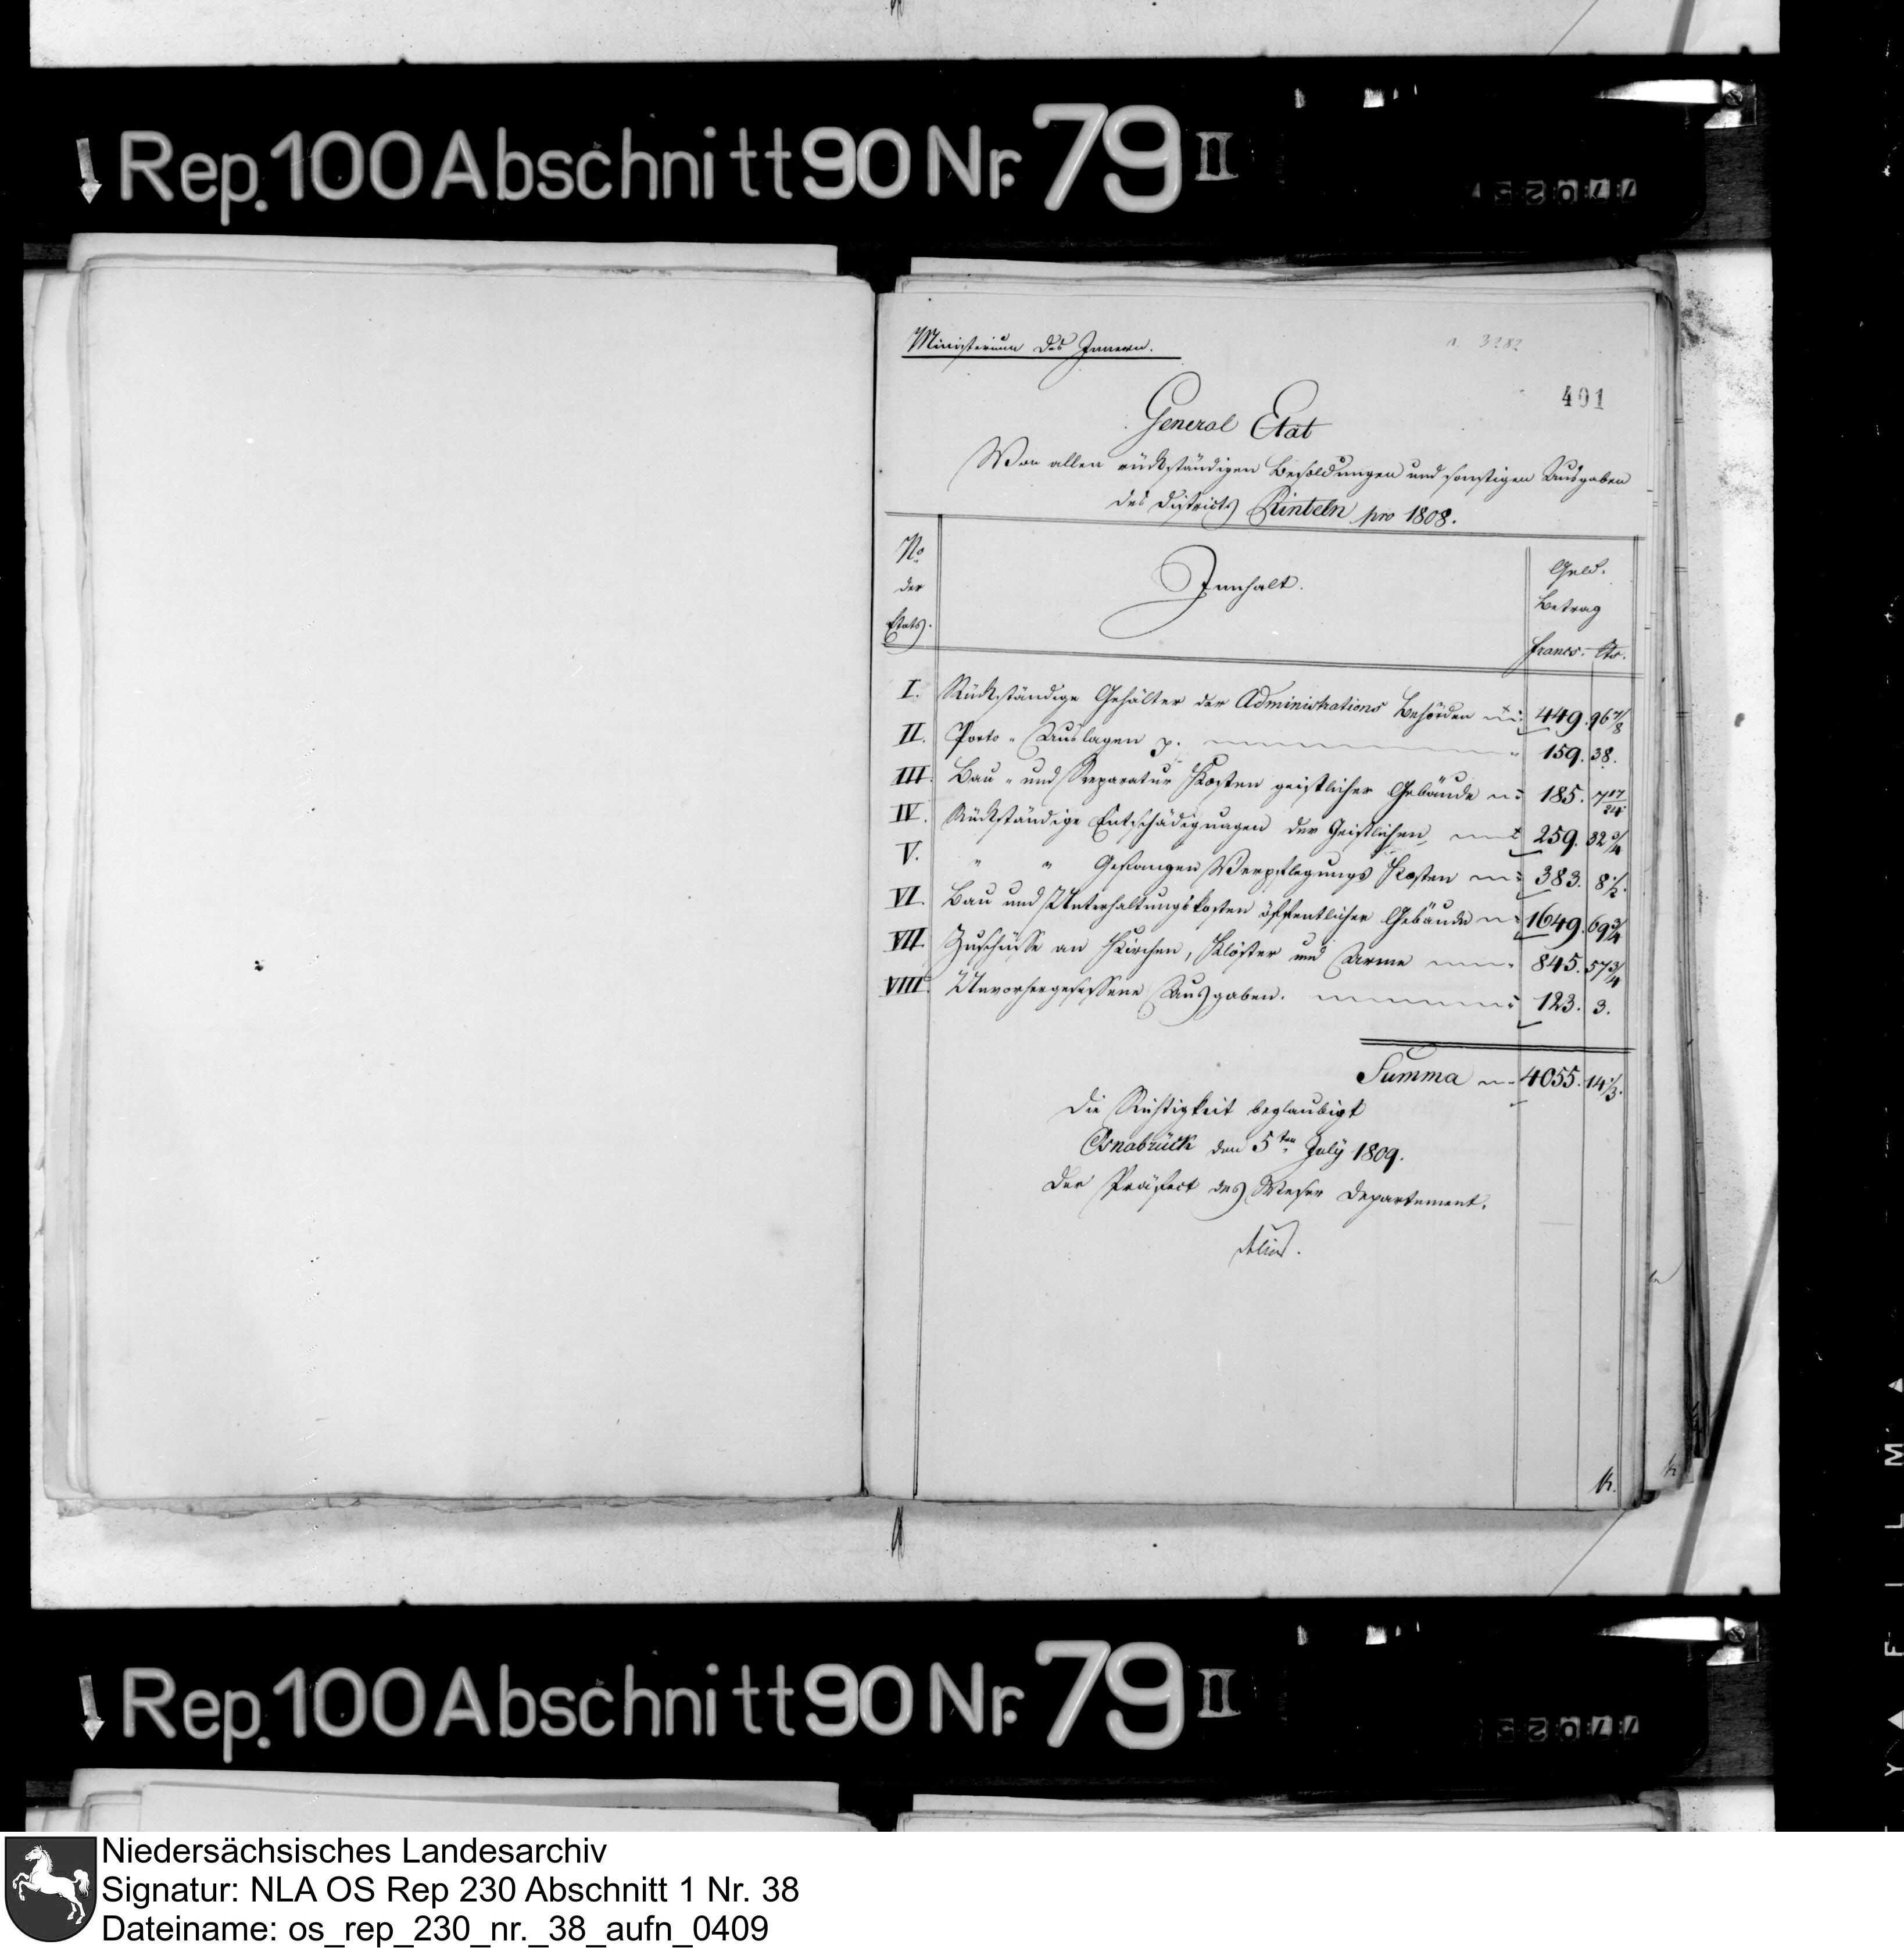 Rep. 100 Abschnitt 90 Nr. 79 II
Ministerium des Innern.
3282
401
General Etat
Von allen rückständigen Besoldungen und sonstigen Ausgaben
des Districts Rinteln pro 1808.
No der Etats. Innhalt. Geld. Betrag francs. Cts.
I. Rückständige Gehälter der Administrations Behörden 449. 96 7/8
II. Porto-Auslagen p. 159. 38.
III. Bau- und Reparatur Kosten geistlicher Gebäude 185. 7 17/24
IV. Rückständige Entschädigungen der Geistlichen 259. 32 3/4
V. " " Gefangen Verpflegungs Kosten 383. 8 1/2.
VI. Bau und Unterhaltungskosten öffentlicher Gebäude 1649. 69 3/4
VII. Zuschüsse an Kirchen, Klöster und Arme 845. 57 3/4
VIII. Unvorhergesehene Ausgaben. 123. 3.
Summa 4055. 14 1/3.
Die Richtigkeit beglaubigt
Osnabrück den 5ten July 1809.
Der Präfect des Weser Departement.
Rep. 100 Abschnitt 90 Nr. 79 II
Niedersächsisches Landesarchiv
Signatur: NLA OS Rep 230 Abschnitt 1 Nr. 38
Dateiname: os_rep_230_nr._38_aufn_0409